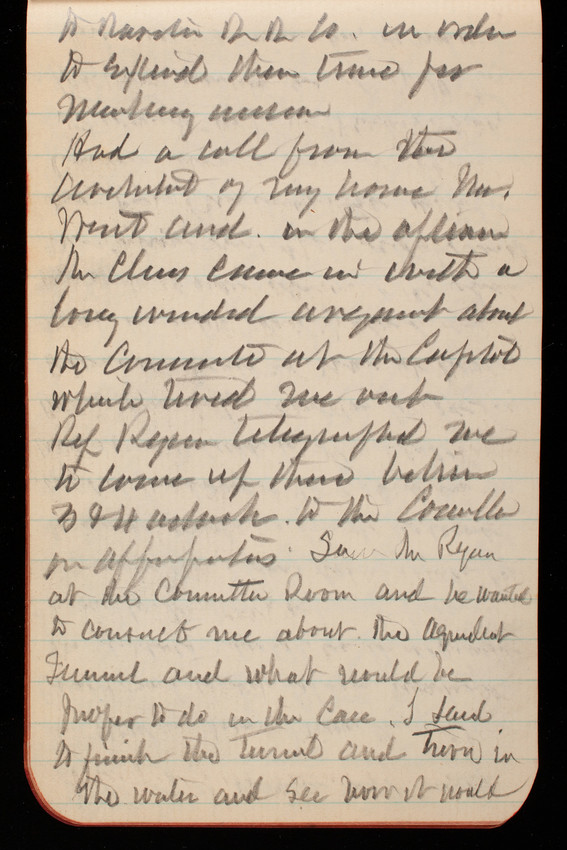 to
to extend their time for
making
Had a call from the
architect of my house Mr.
and. in the
Mr Clem came in with a
long winded argument about
the Concrete at the Capitol
which tired me out
Rep Ryan telegraphed me
to come up there between
3 & 4 oclock. to the Committee
on appropriations. Saw Mr Ryan
at the Committee Room and he wanted
to consult me about. the aqueduct
Tunnel and what would be
proper to do in the Case. I said
to finish the tunnel and turn in
the water and see how it would